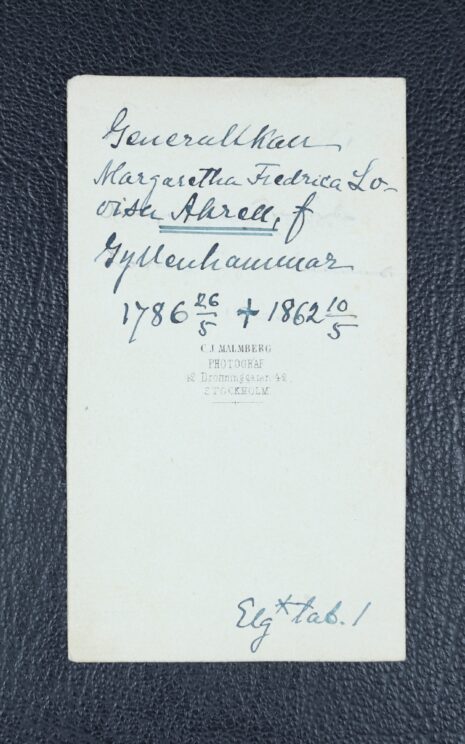 Generalskan
Margaretha Fredrica Lo-
visa Ahrell, f
Gyllenhammar
1786 26/5 + 1862 10/5
C.J. MALMBERG
PHOTOGRAF
42 Drottninggatan 42.
STOCKHOLM
Elg* tab. 1